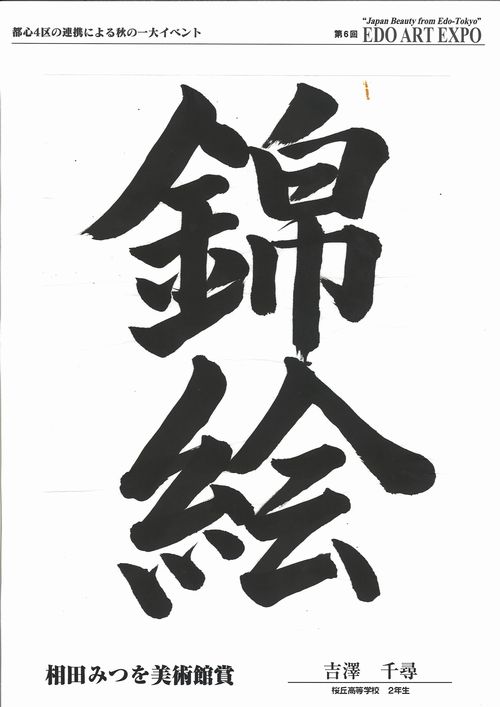 都心4区の連携による秋の一大イベント
"Japan Beauty from Edo-Tokyo"
第6回 EDO ART EXPO
錦
絵
相田みつを美術館賞
吉澤 千尋
桜丘高等学校 2年生